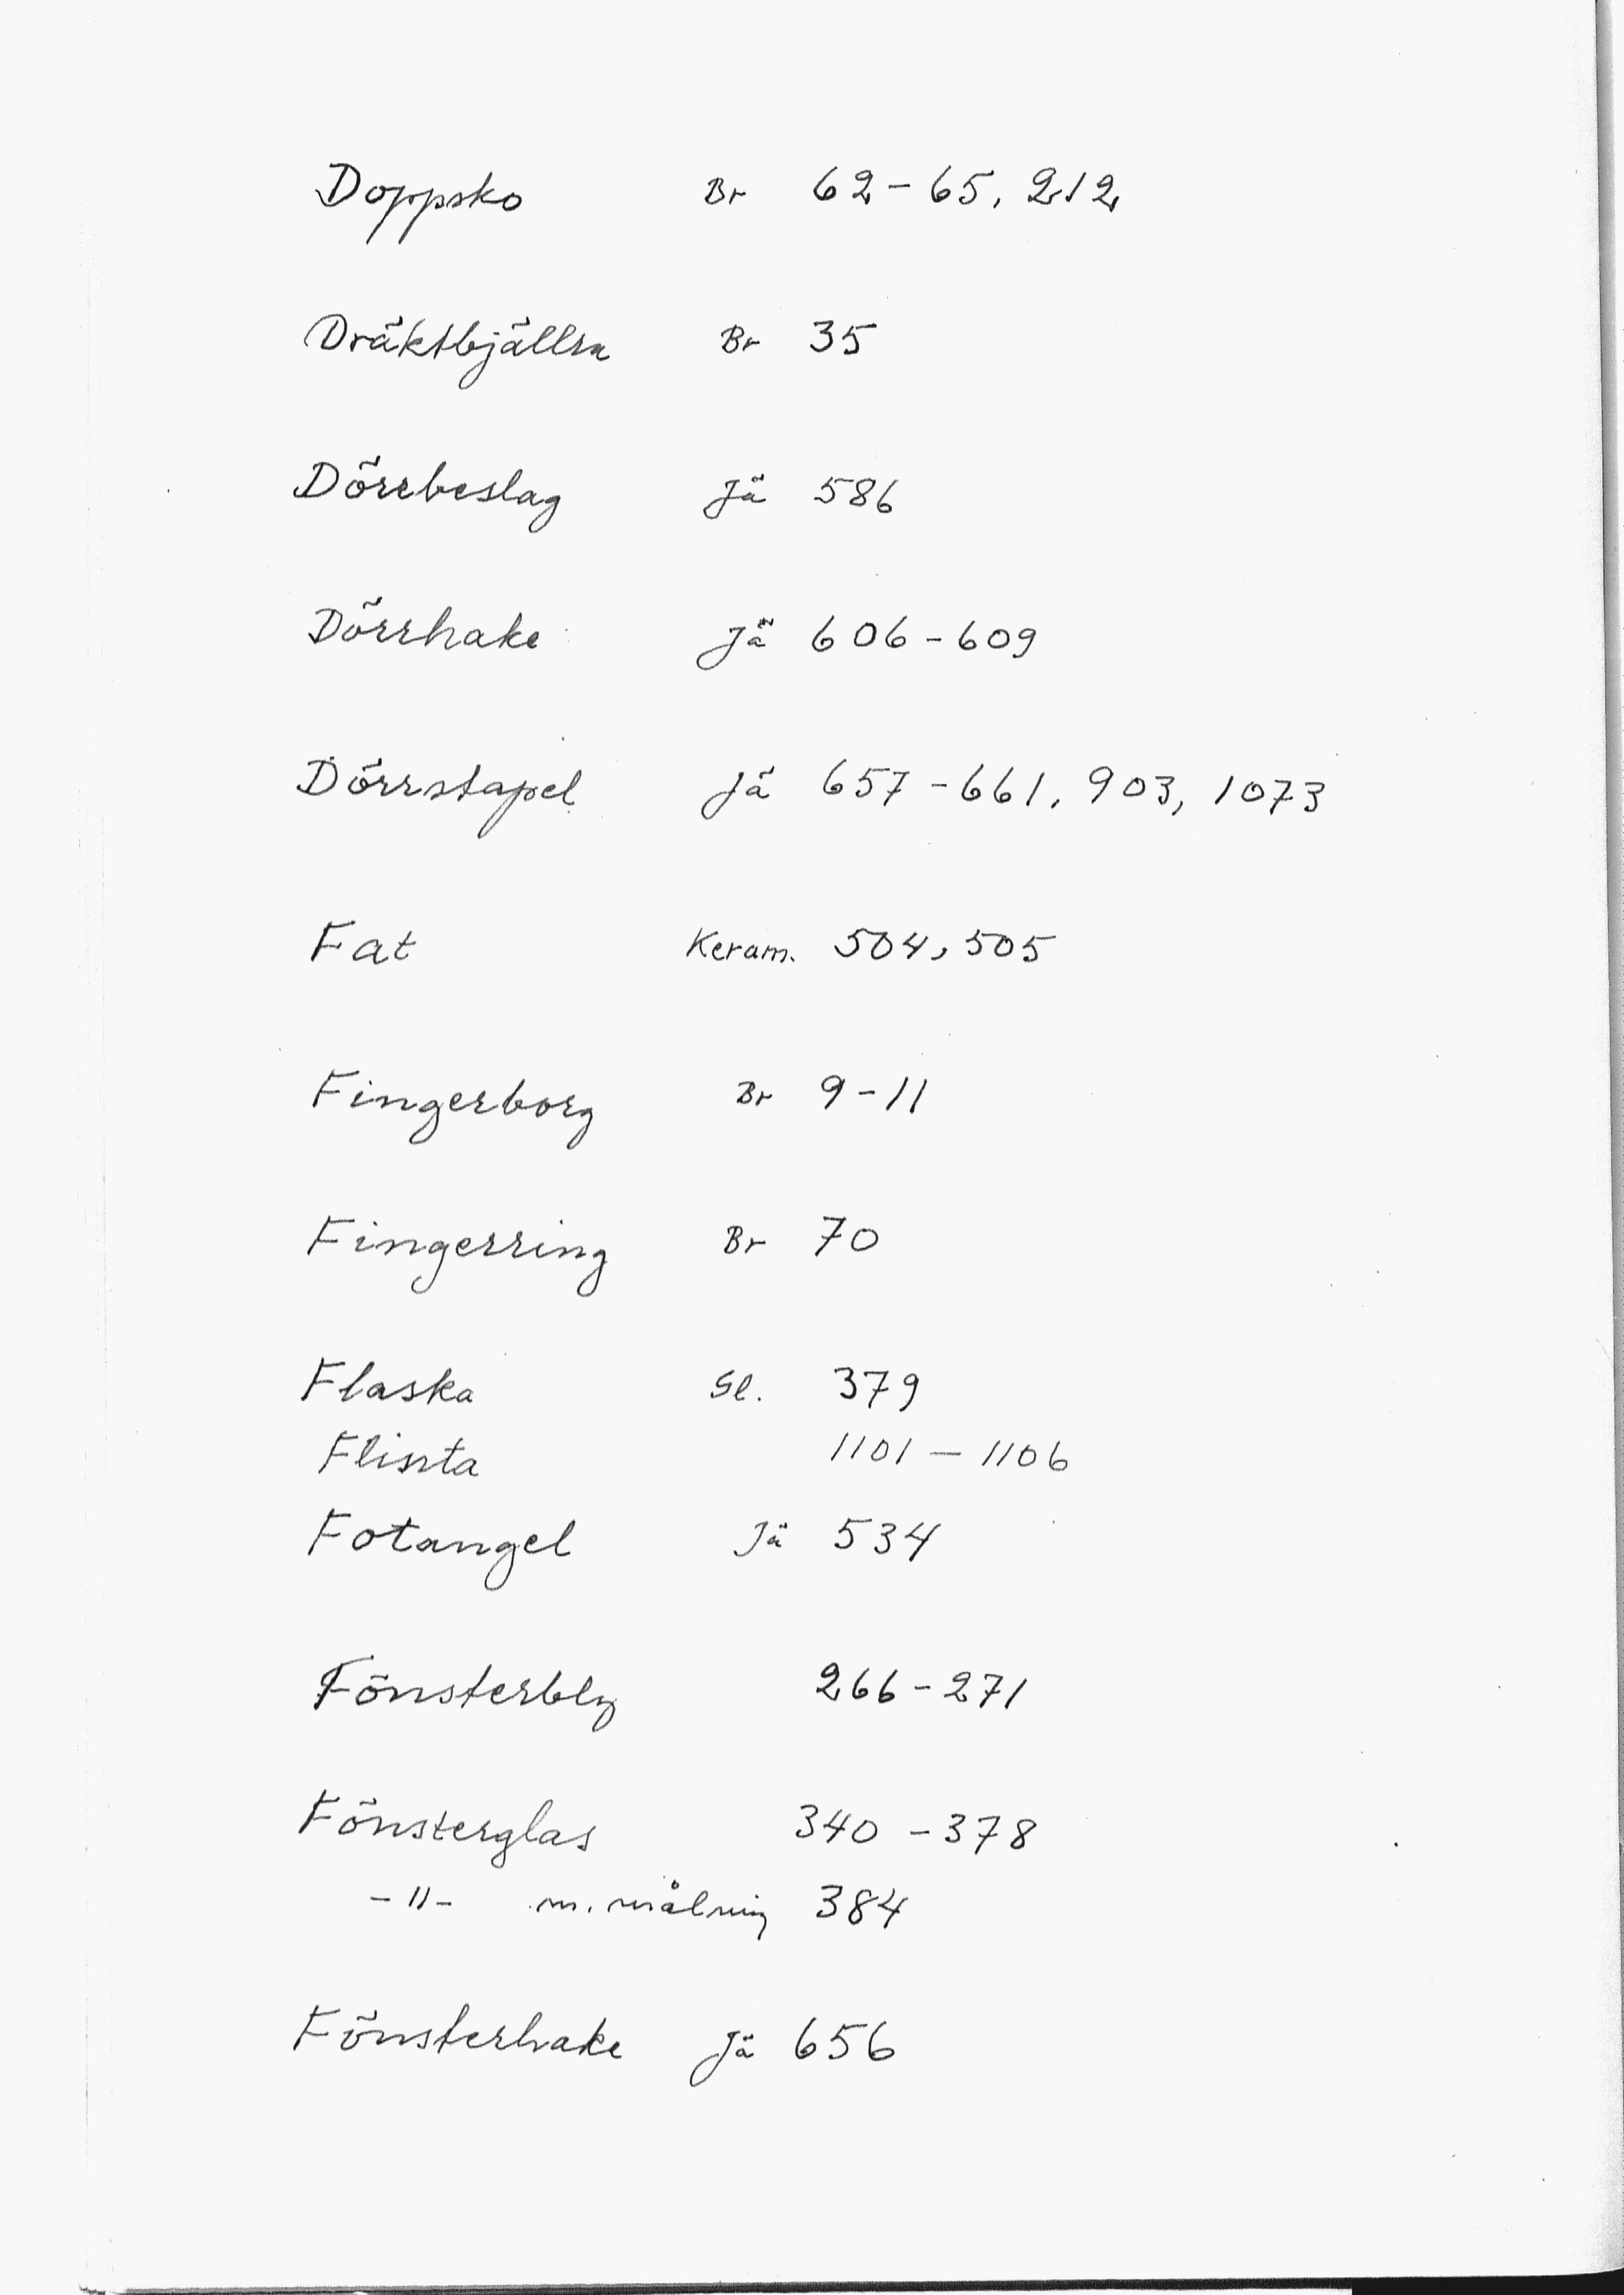 Doppsko Br 62-65, 212
Dräktbjällra Br 35
Dörrbeslag Jä 586
Dörrhake Jä 606-609
Dörrstapel Jä 657-661, 903, 1073
Fat Keram. 504, 505
Fingerborg Br 9-11
Fingerring Br 70
Flaska Gl. 379
Flinta 1101-1106
Fotangel Jä 534
Fönsterbly 266-271
Fönsterglas 340-378
-11- m. målning 384
Fönsterhake Jä 656